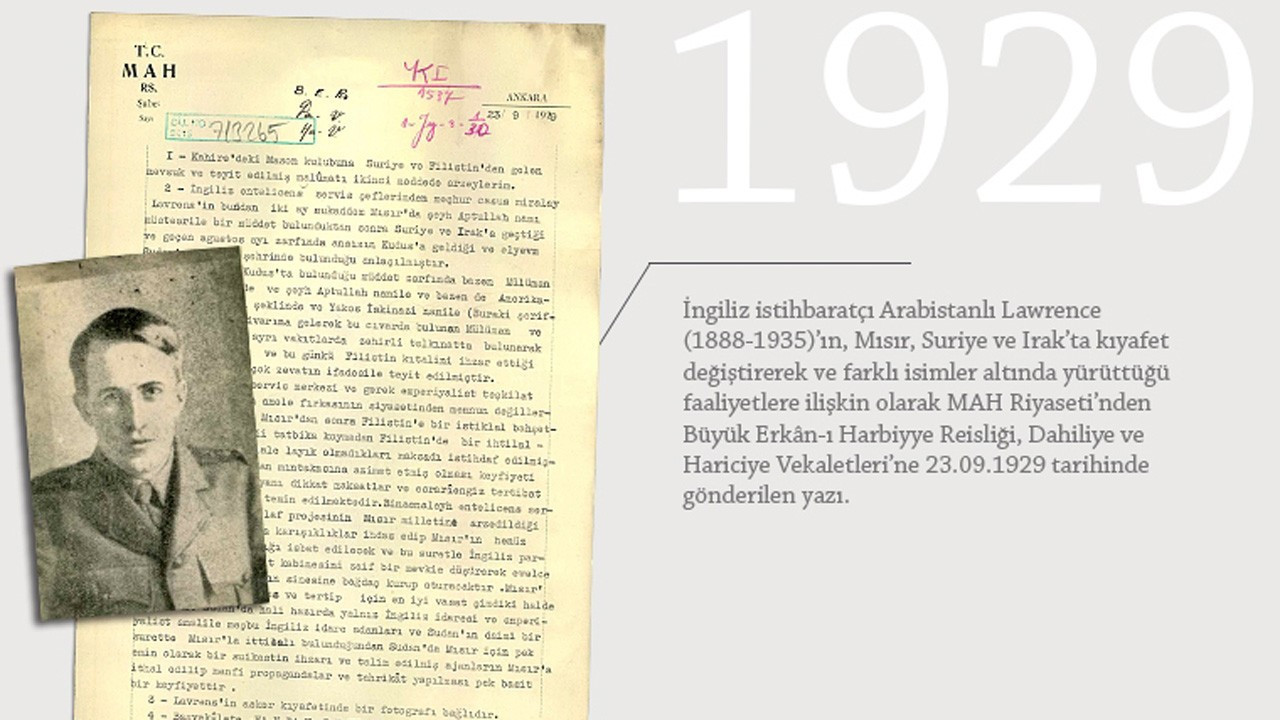 T.C.
MAH
RS.
Şube:
Sayı
B. E. R.
YKI
1534
ANKARA
23/ 9 / 1929
713265
1929
I - Kahire'deki Mason kulubuna Suriye ve Filistin'den gelen
mevsuk ve teyit edilmiş malûmatı ikinci maddede arzeylerim.
2 - İngiliz entelicens servis şeflerinden meşhur casus miralay
Lavrens'in bundan iki ay mukaddem Mısır'da şeyh Aptullah namı
müstearile bir müddet bulunduktan sonra Suriye ve Irak'a geçtiği
ve geçen agustos ayı zarfında ansızın Kudus'a geldiği ve elyevm
şehrinde bulunduğu anlaşılmıştır.
Kudus'ta bulunduğu müddet zarfında bazen Müslüman
ve şeyh Aptullah namile ve bazen de Amerika-
şeklinde ve Yakos İskinazi namile (Buraki şerif-
ivarına gelerek bu civarda bulunan Müslüman ve
ayrı vakıtlarda zehirli telkınatta bulunarak
ve bu günkü Filistin kıtalini ihzar ettiği
çok zevatın ifadesile teyit edilmiştir.
servis merkezi ve gerek emperiyalist teşkilat
amele fırkasının siyasetinden memnun değiller-
Mısır'dan sonra Filistin'e bir istiklal bahşet-
tatbika koymadan Filistin'de bir ihtilal -
layık olmadıkları maksadı istihdaf edilmiş-
an mıntakasına azimet etmiş olması keyfiyeti
yanı dikkat maksatlar ve esrarengiz tertibat
temin edilmektedir.Binaenaleyh entelicens ser-
laf projesinin Mısır milletine arzedildiği
karışıklıklar ihdas edip Mısır'ın henüz
ğı isbat edilecek ve bu suretle İngiliz par-
t kabinesini zaif bir mevkie düşürerek evvelce
sinesine bağdaş kurup oturacaktır .Mısır'
ve tertip için en iyi vasat şimdiki halde
hali hazırda yalnız İngiliz idaresi ve emperi-
yalist amalile meşbu İngiliz idare adamları ve Sudan'ın daimi bir
surette Mısır'la ittisalı bulunduğundan Sudan'da Mısır için pek
emin olarak bir suikastin ihzarı ve talim edilmiş ajanların Mısır'a
ithal edilip menfi propagandalar ve tahrikât yapılması pek basit
bir keyfiyettir .
3 - Lavrens'in asker kıyafetinde bir fotografı bağlıdır.
İngiliz istihbaratçı Arabistanlı Lawrence
(1888-1935)’ın, Mısır, Suriye ve Irak’ta kıyafet
değiştirerek ve farklı isimler altında yürüttüğü
faaliyetlere ilişkin olarak MAH Riyaseti’nden
Büyük Erkân-ı Harbiyye Reisliği, Dahiliye ve
Hariciye Vekaletleri’ne 23.09.1929 tarihinde
gönderilen yazı.